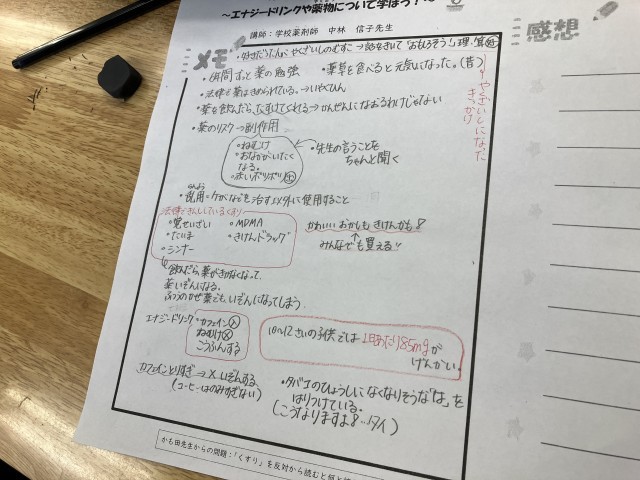 ～エナジードリンクや薬物について学ぼう！～
講師：学校薬剤師　中林　信子先生
メモ
感想
・6年間ずっと薬の勉強
・薬草を食べると元気になった。(昔)
やくざいしになった
きっかけ
・法律で薬はきめられている。→いやくひん
・薬を飲んだら、たすけてくれる→かんぜんになおるわけじゃない
・薬のリスク→副作用
・ねむけ
・おなかがいたく
なる。
・赤いポツポツ
・先生の言うことを
ちゃんと聞く
らんよう
・乱用＝ケガなどを治す以外に使用すること
法律できんししているくすり
・覚せいざい
・MDMA
・たいま
・きけんドラッグ
・シンナー
かわいいおかしもきけんかも？
みんなでも買える!!
飲んだら、薬がきかなくなって、
薬いぞんになる。
ふつうのかぜ薬でも、いぞんになってしまう。
エナジードリンク
・カフェイン入
ねむけ✕
こうふんする
10〜12さいの子供では1日あたり85mgが
げんかい。
カフェインとりすぎ→✕いぞんする、
(コーヒーはのみすぎない)
・タバコのひょうしになくなりそうな「は」を
はりつけている。
(こうなりますよ？…タイ)
かも田先生からの問題：「くすり」を反対から読むと何と